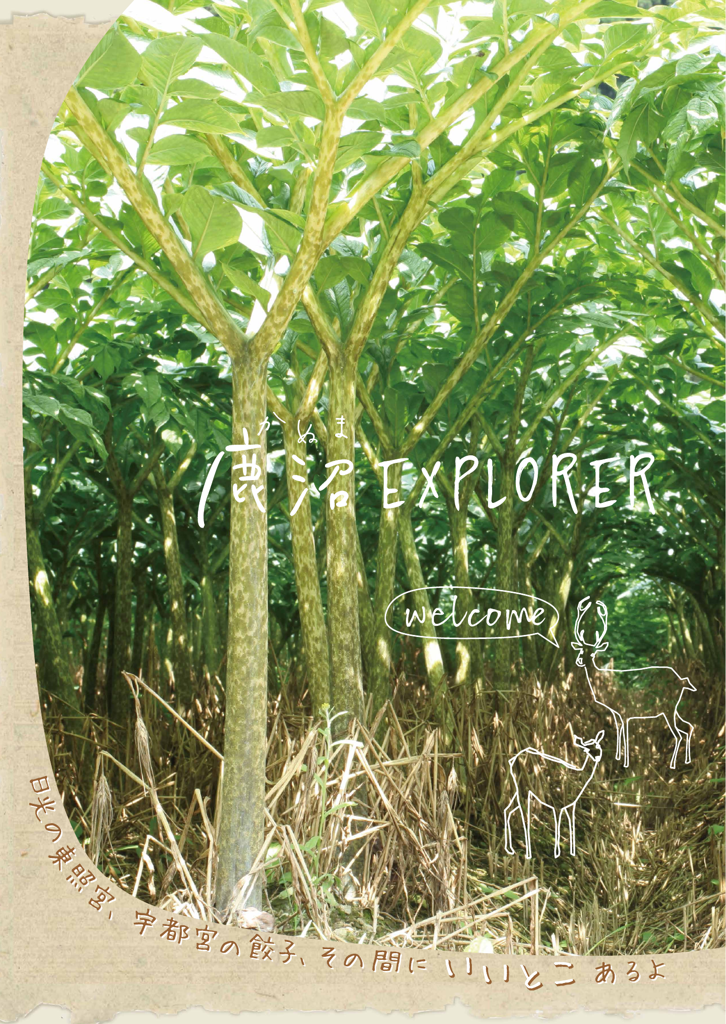 かぬま
鹿沼 EXPLORER
welcome
日光の東照宮、宇都宮の餃子、その間に いいとこ あるよ